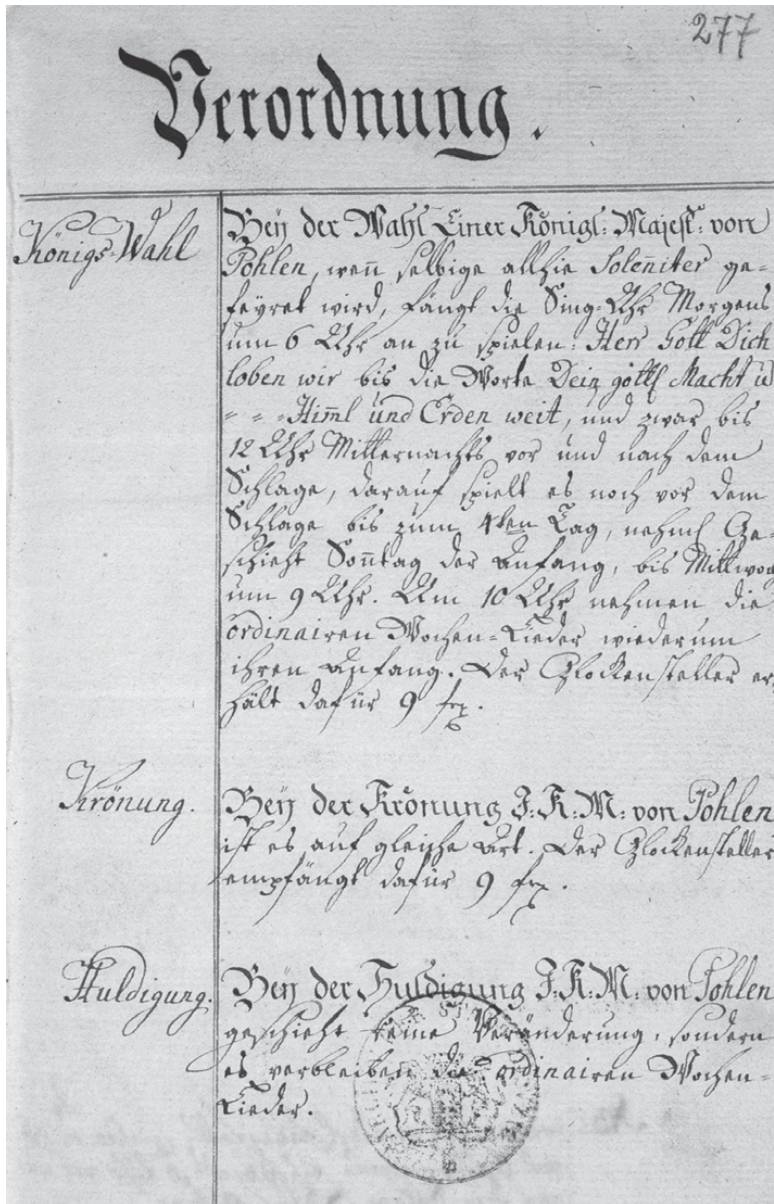 277
Verordnung.
Königs-Wahl
Beÿ der Wahl Einer Königl: Majest: von
Pohlen, weñ selbige allhie Soleñiter ge-
feyret wird, fängt die Sing-Uhr Morgens
um 6 Uhr an zu spielen: Herr Gott Dich
loben wir bis die Worte Dein göttl Macht u
- - - Him̄l und Erden weit, und zwar bis
12 Uhr Mitternachts vor und nach dem
Schlage, darauf spielt es noch vor dem
Schlage bis zum 4ten Tag, nehml Ge-
schieht Soñtag der Anfang, bis Mittwoch
um 9 Uhr. Um 10 Uhr nehmen die
ordinairen Wochen-Lieder wiederum
ihren Anfang. Der Glockensteller er-
hält dafür 9 
Krönung.
Beÿ der Krönung I: K: M: von Pohlen
ist es auf gleiche Art. Der Glockensteller
empfängt dafür 9 
Huldigung.
Beÿ der Huldigung I: K: M: von Pohlen
geschieht keine Veränderung, sondern
es verbleiben die ordinairen Wochen-
Lieder.